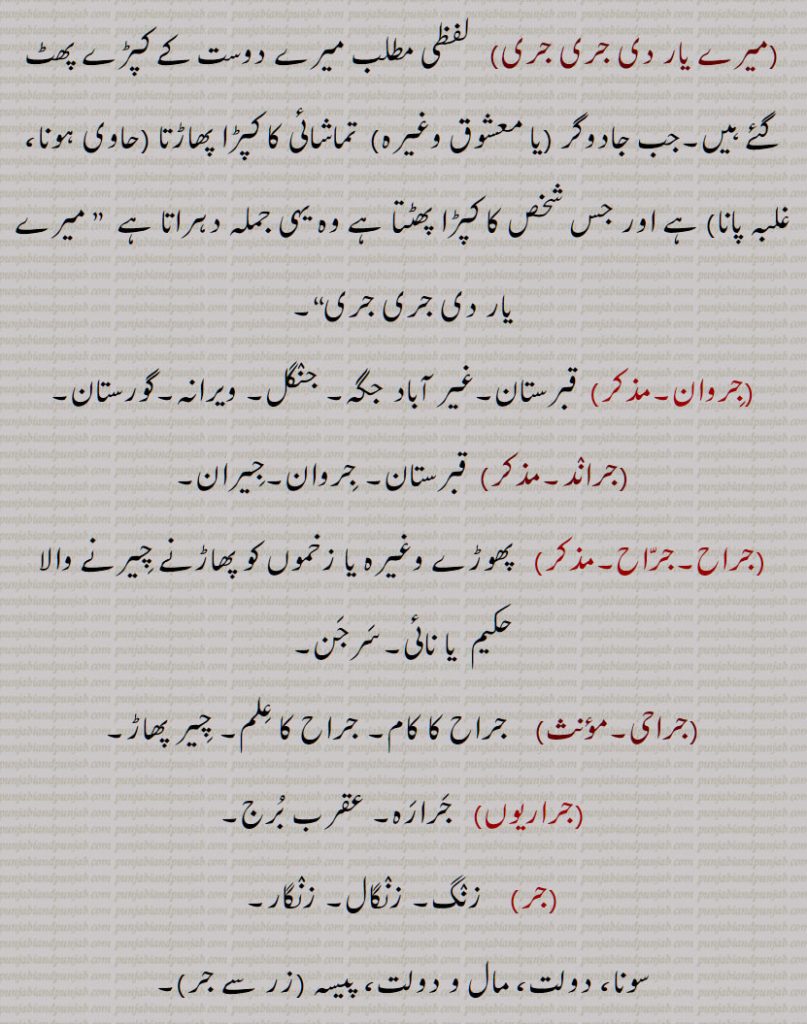 (میرے یار دی جری جری) لفظی مطلب میرے دوست کے کپڑے پھٹ
گئے ہیں۔جب جادوگر (یا معشوق وغیرہ) تماشائی کا کپڑا پھاڑتا (حاوی ہونا،
غلبہ پانا) ہے اور جس شخص کا کپڑا پھٹتا ہے وہ یہی جملہ دہراتا ہے ” میرے
یار دی جری جری“۔
(جِروان۔مذکر) قبرستان۔غیر آباد جگہ۔ جنگل۔ ویرانہ۔گورستان۔
(جرانٛد۔مذکر) قبرستان۔ جِروان۔جِیران۔
(جراح۔جرّاح۔مذکر) پھوڑے وغیرہ یا زخموں کو پھاڑنے چِیرنے والا
حکیم یا نائی۔ سَرجَن۔
(جراحی۔مؤنث) جراح کا کام۔ جراح کا عِلم۔ چِیر پھاڑ۔
(جراریوں) جَرارَہ۔ عقرب بُرج۔
(جر) زنٛگ۔ زنٛگال۔ زنٛگار۔
سونا، دولت، مال و دولت، پیسہ (زر سے جر)۔
punjabiandpunjab.com